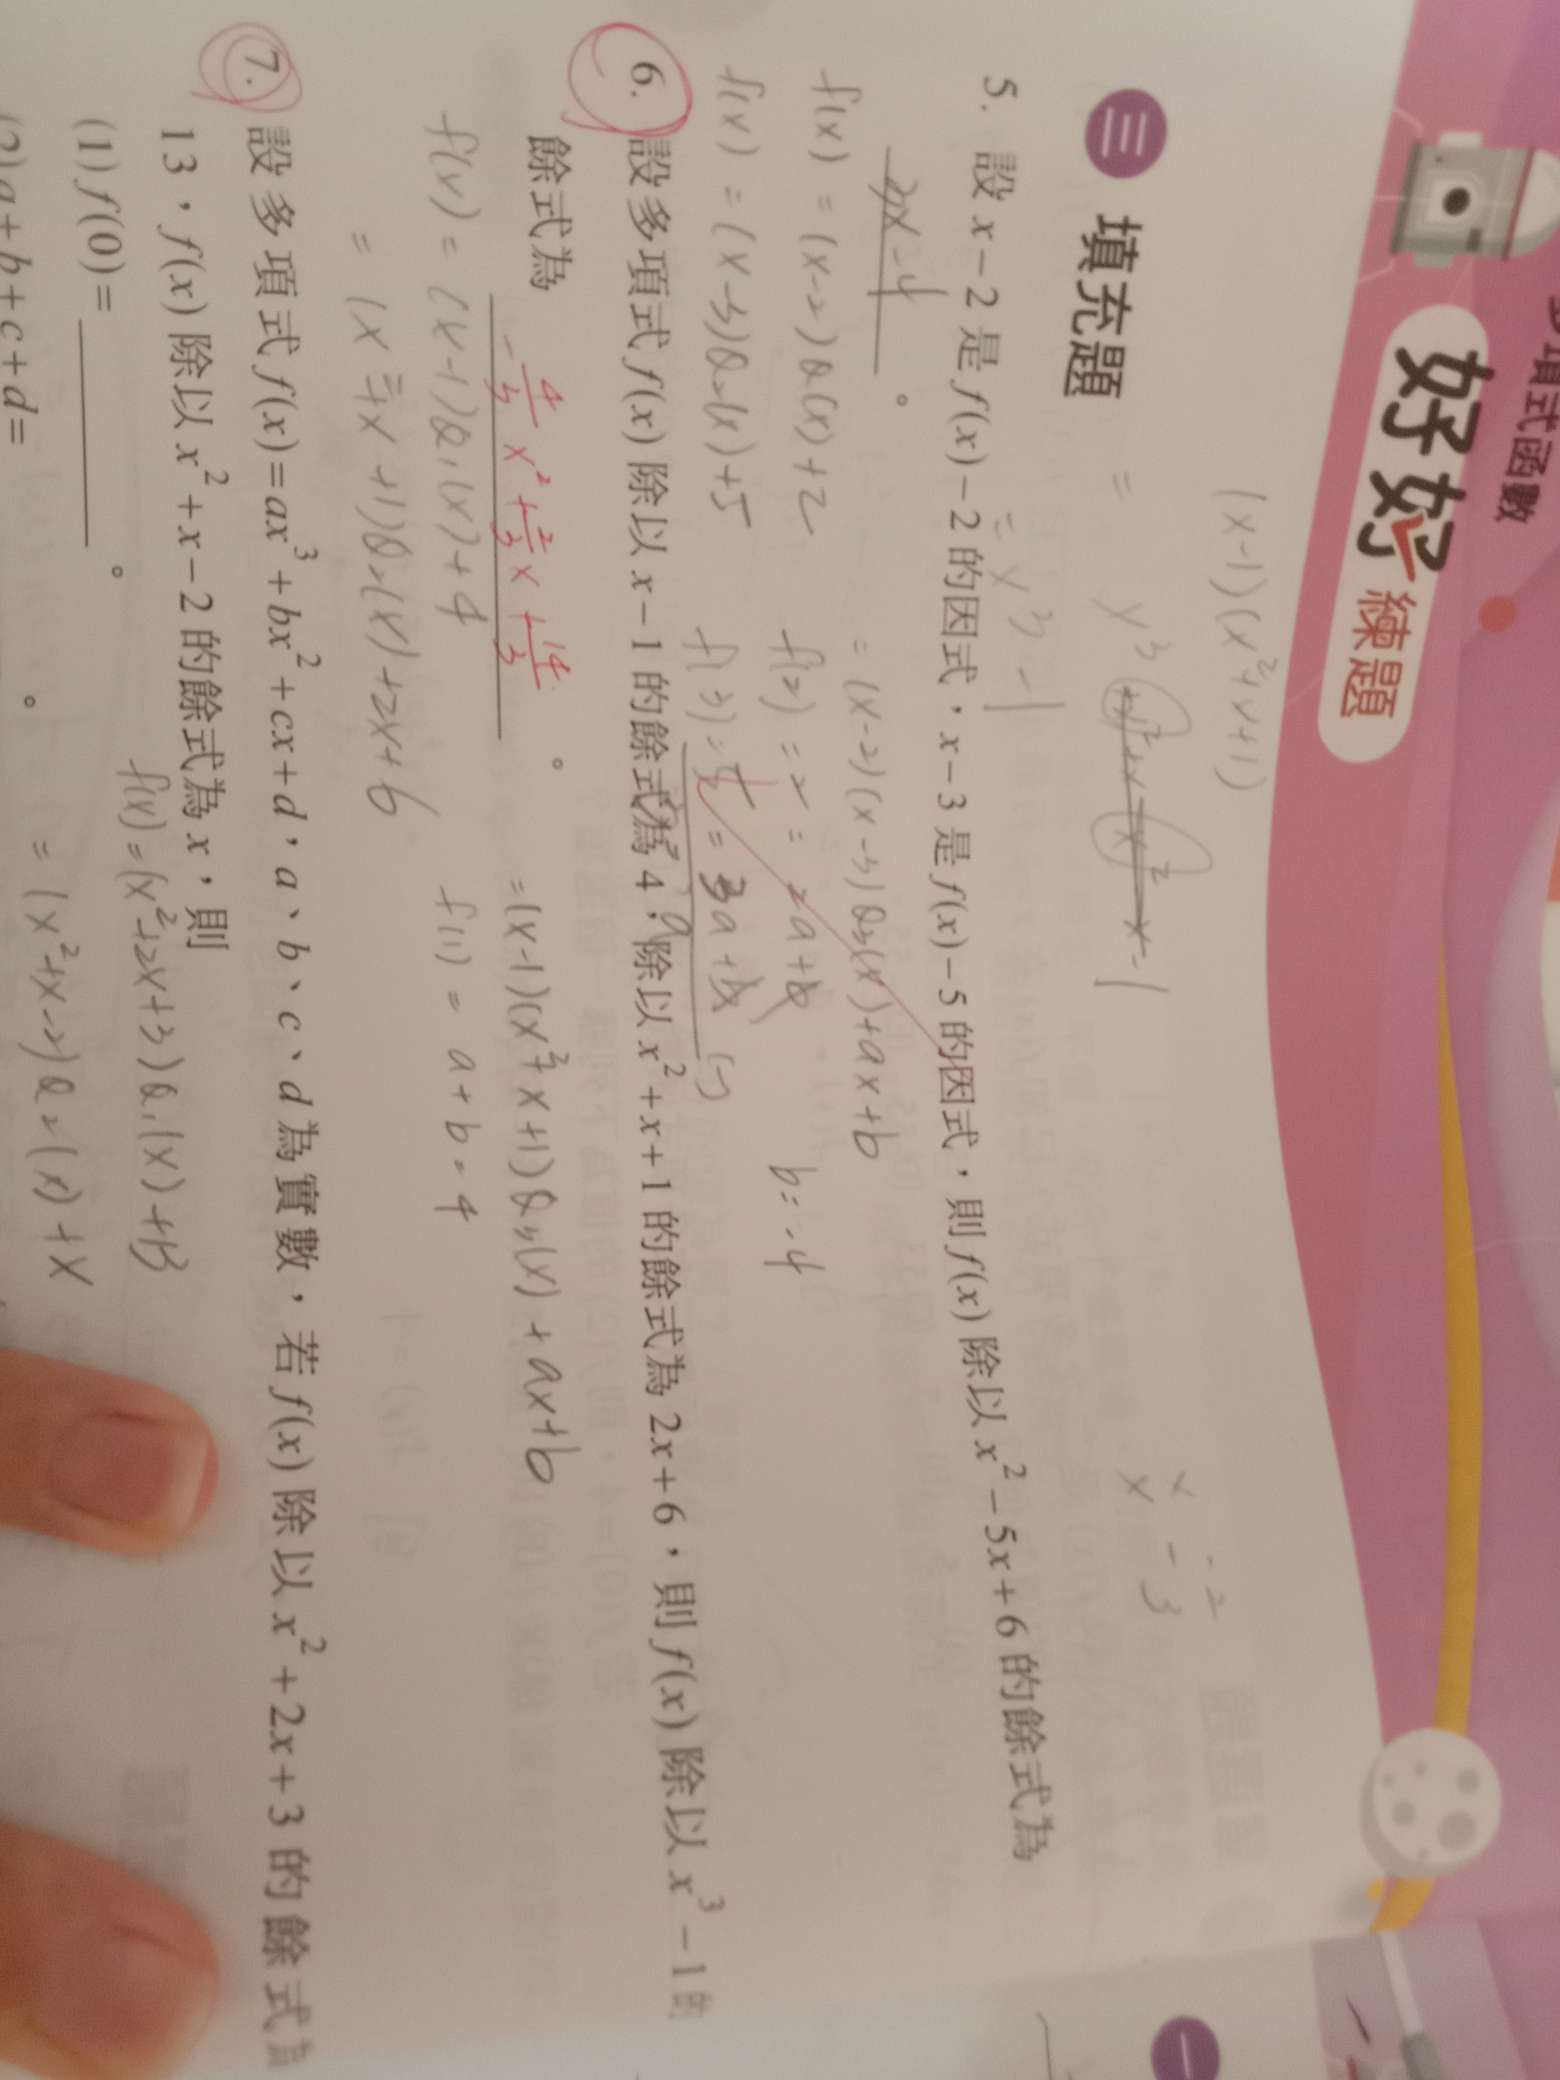 項式函數
好好練題
(x-1)(x²+x+1)
三 填充題
= x³
-1
= x³-1
x -2
x -3
5. 設 x-2 是 f(x)-2 的因式，x-3 是 f(x)-5 的因式，則 f(x) 除以 x²-5x+6 的餘式為
3x-4 。
f(x) = (x-2)Q(x)+2
f(x) = (x-3)Q₂(x)+5
= (x-2)(x-3)Q₃(x)+ax+b
f(2) = 2 = 2a+b
b=-4
6. 設多項式 f(x) 除以 x-1 的餘式為 4，除以 x²+x+1 的餘式為 2x+6，則 f(x) 除以 x³-1 的
餘式為 -4/3 x²+2/3 x+14/3 。
f(x) = (x-1)Q₁(x)+4
= (x²+x+1)Q₂(x)+2x+6
= (x-1)(x²+x+1)Q₃(x)+ax+b
f(1) = a+b=4
7. 設多項式 f(x)=ax³+bx²+cx+d，a、b、c、d 為實數，若 f(x) 除以 x²+2x+3 的餘式為
13，f(x) 除以 x²+x-2 的餘式為 x，則
(1) f(0)= 。
f(x) = (x²+2x+3)Q₁(x)+13
= (x²+x-2)Q₂(x)+x
(2) a+b+c+d= 。
一